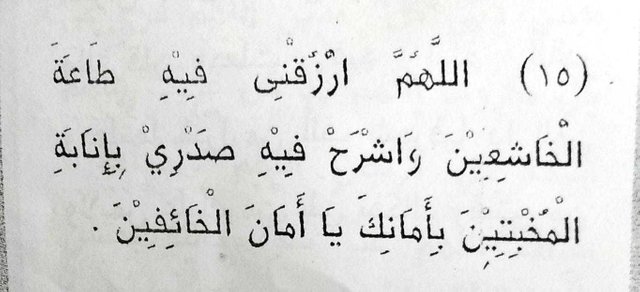 (١٥) اللَّهُمَّ ارْزُقْنِى فِيْهِ طَاعَةَ
الْخَاشِعِيْنَ وَاشْرَحْ فِيْهِ صَدْرِيْ بِإِنَابَةِ
الْمُخْبِتِيْنَ بِأَمَانِكَ يَا أَمَانَ الْخَائِفِيْنَ .